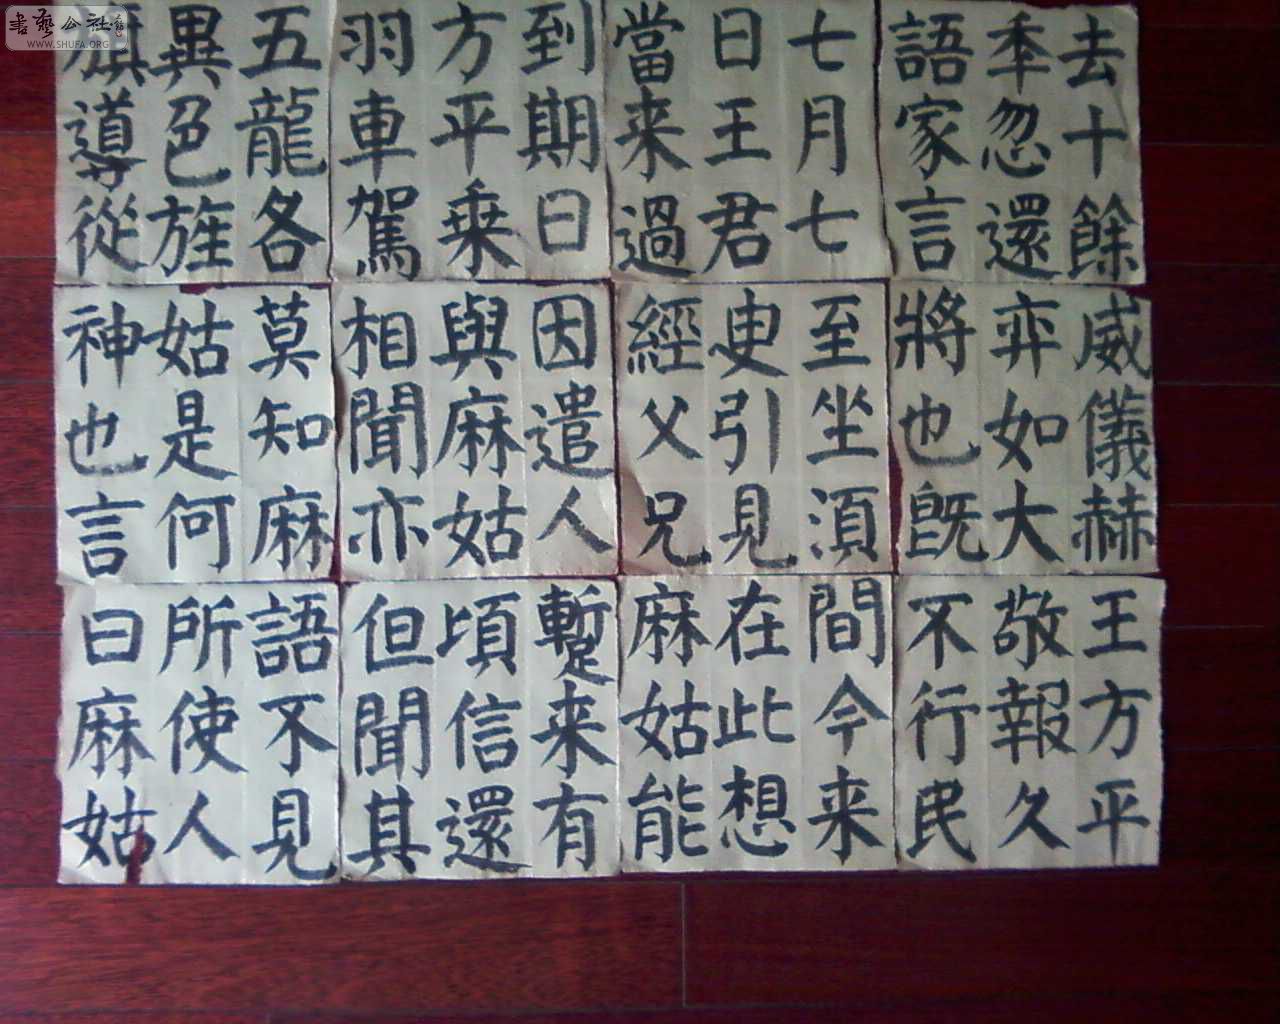 書藝公社
WWW.SHUFA.ORG
去十餘
季忽還
語家言
七月七
日王君
當来過
到期日
方平乗
羽車駕
五龍各
異色旌
旗導從
威儀赫
弈如大
將也旣
至坐湏
叓引見
經父兄
因遣人
與麻姑
相聞亦
莫知麻
姑是何
神也言
王方平
敬報久
不行民
間今来
在此想
麻姑能
蹔来有
頃信還
但聞其
語不見
所使人
曰麻姑